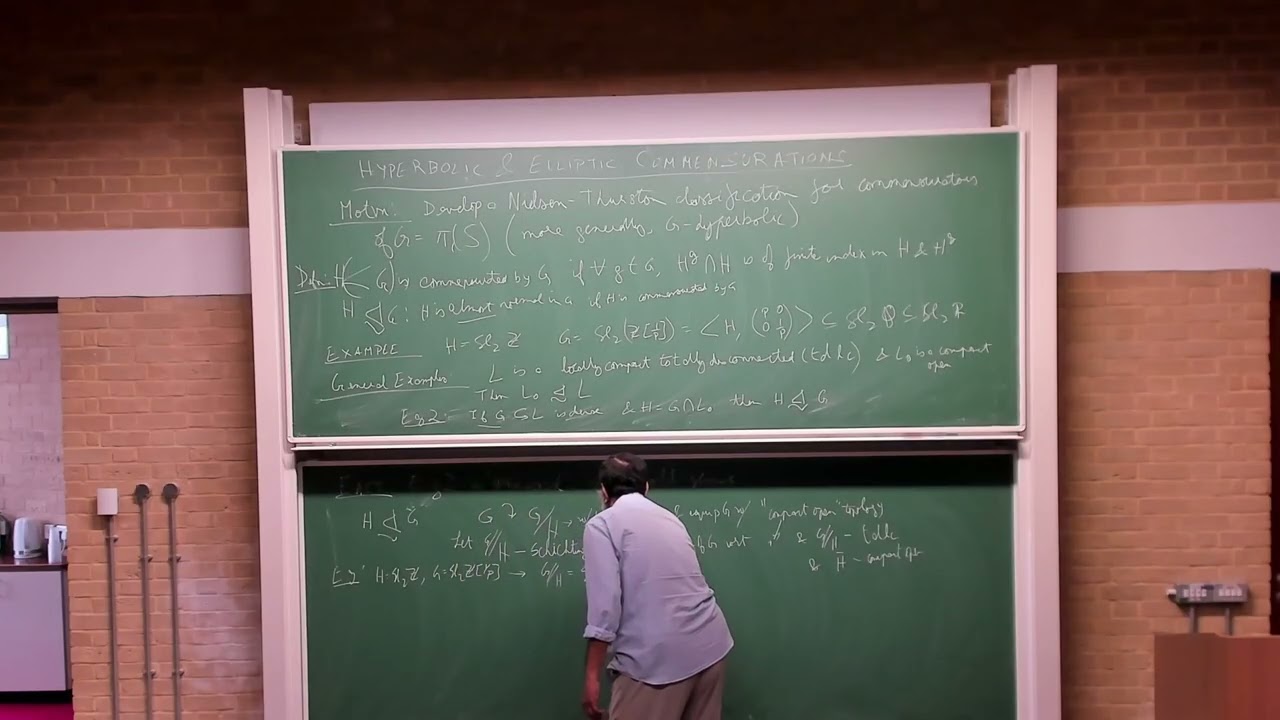 HYPERBOLIC & ELLIPTIC COMMENSURATIONS
Motvn: Develop a Nielsen-Thurston classification for commensurators
of G = π₁(S) (more generally, G-hyperbolic)
Defn: H(≤ G) is commensurated by G if ∀ g ∈ G, H^g ∩ H is of finite index in H & H^g
H ⊴ G : H is almost normal in G if H is commensurated by G
EXAMPLE H = Sl₂ Z G = Sl₂(Z[1/p]) = < H, (p 0 0 1/p) > ⊆ Sl₂ Q ⊆ Sl₂ R
General Examples: L is a locally compact totally disconnected (tdlc) & L₀ is a compact open
Then L₀ ⊴ L
Eg 2: If G ⊆ L is dense & H = G ∩ L₀ then H ⊴ G
H ⊴ G G ↷ G/H → & equip G w/ "compact open" topology
Let G//H - Schlichting of G wrt & G//H - tdlc
& H̄ - compact open
Eg' H = Sl₂ Z, G = Sl₂ Z[1/p] → G//H =